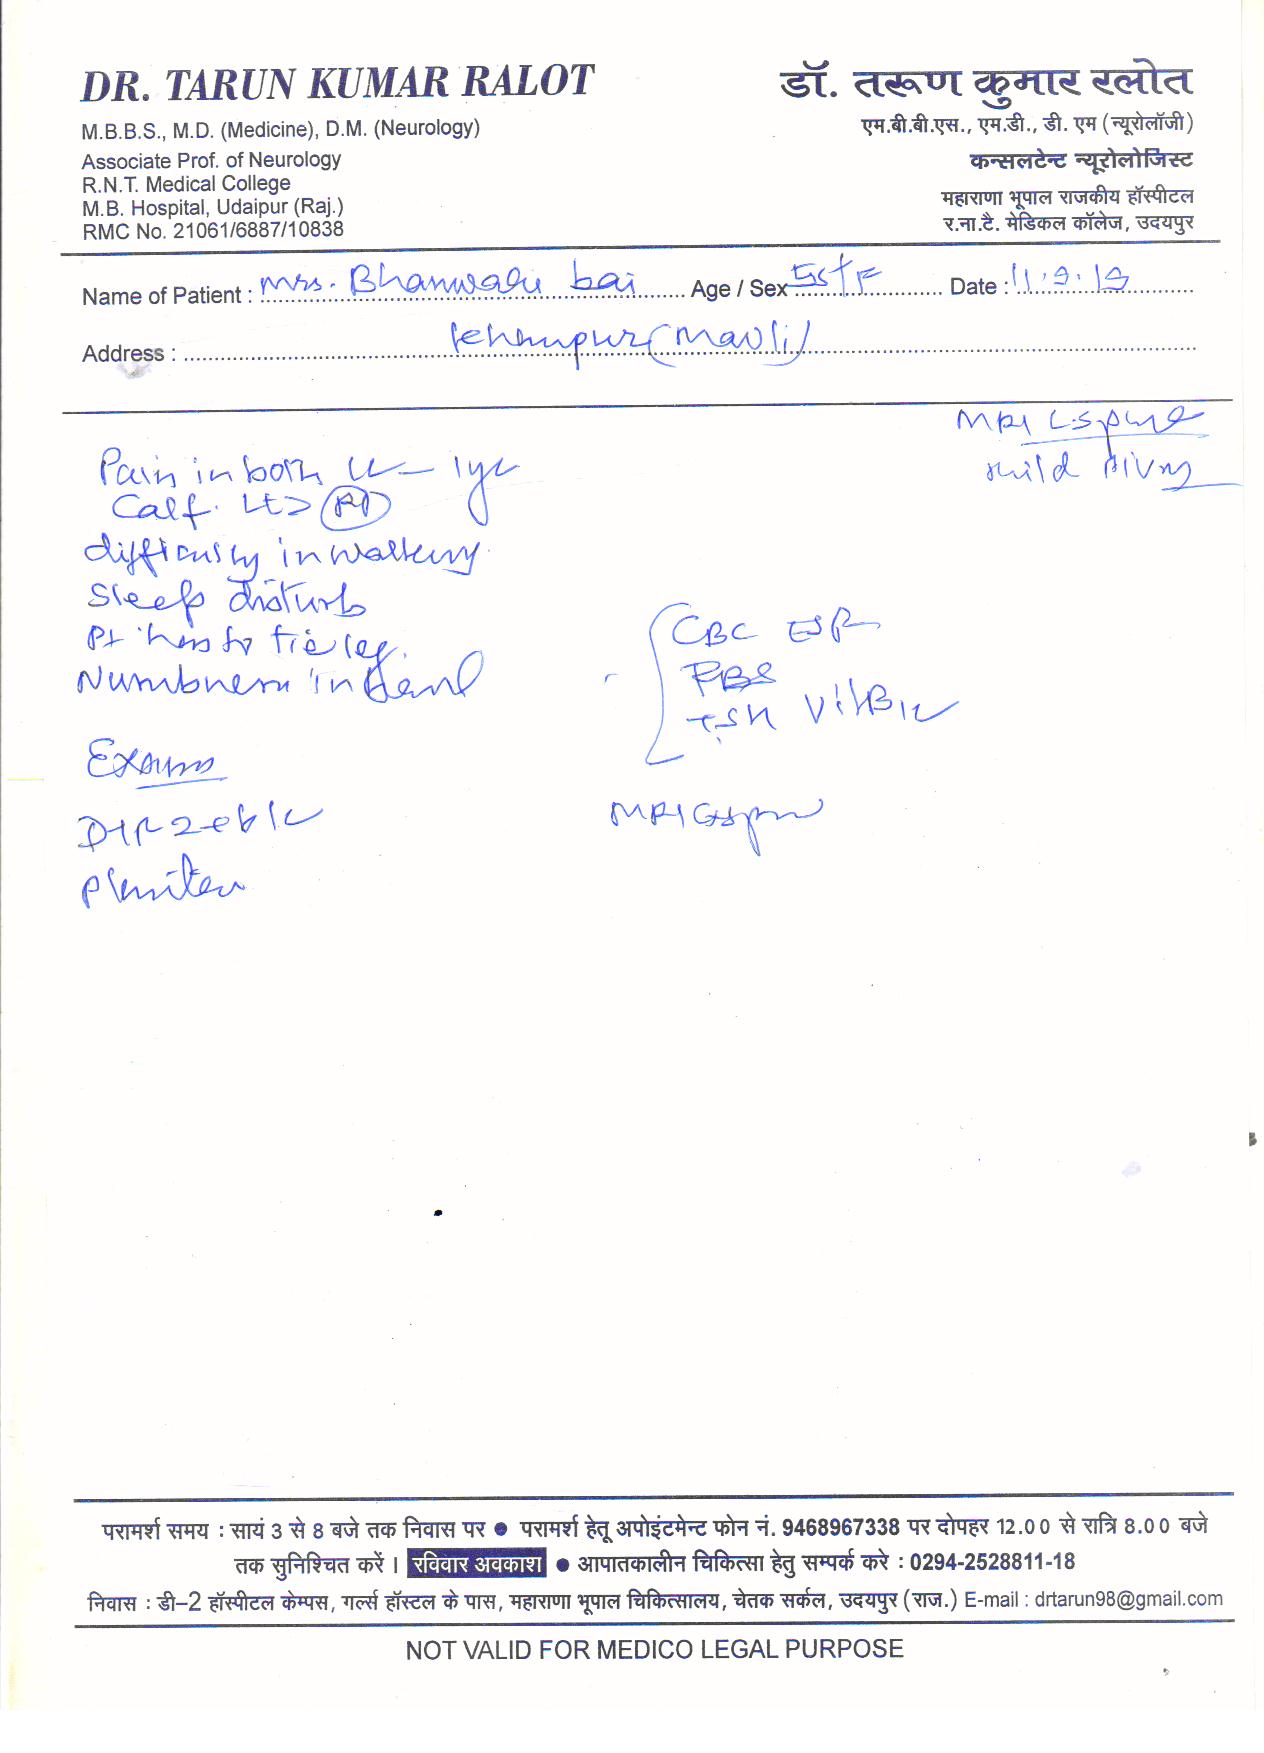 DR. TARUN KUMAR RALOT
M.B.B.S., M.D. (Medicine), D.M. (Neurology)
Associate Prof. of Neurology
R.N.T. Medical College
M.B. Hospital, Udaipur (Raj.)
RMC No. 21061/6887/10838
डॉ. तरूण कुमार रलोत
एम.बी.बी.एस., एम.डी., डी. एम (न्यूरोलॉजी)
कन्सलटेन्ट न्यूरोलोजिस्ट
महाराणा भूपाल राजकीय हॉस्पीटल
र.ना.टै. मेडिकल कॉलेज, उदयपुर
Name of Patient : Mrs. Bhanwari bai Age / Sex 55/F Date : 11.9.19
Address : (Mavli)
MRI LS spine
mild
Pain in both LL - 1yr
Calf. Lt > Rt
difficulty in walking
Sleep disturb
Pt has to tie leg.
Numbness in Hand
CBC ESR
RBS
TSH Vit B12
Exam
DTR 2+ b/l
Plantar
MRI C spine
परामर्श समय : सायं 3 से 8 बजे तक निवास पर ● परामर्श हेतू अपोइंटमेन्ट फोन नं. 9468967338 पर दोपहर 12.00 से रात्रि 8.00 बजे
तक सुनिश्चित करें । रविवार अवकाश ● आपातकालीन चिकित्सा हेतु सम्पर्क करे : 0294-2528811-18
निवास : डी-2 हॉस्पीटल केम्पस, गर्ल्स हॉस्टल के पास, महाराणा भूपाल चिकित्सालय, चेतक सर्कल, उदयपुर (राज.) E-mail : drtarun98@gmail.com
NOT VALID FOR MEDICO LEGAL PURPOSE